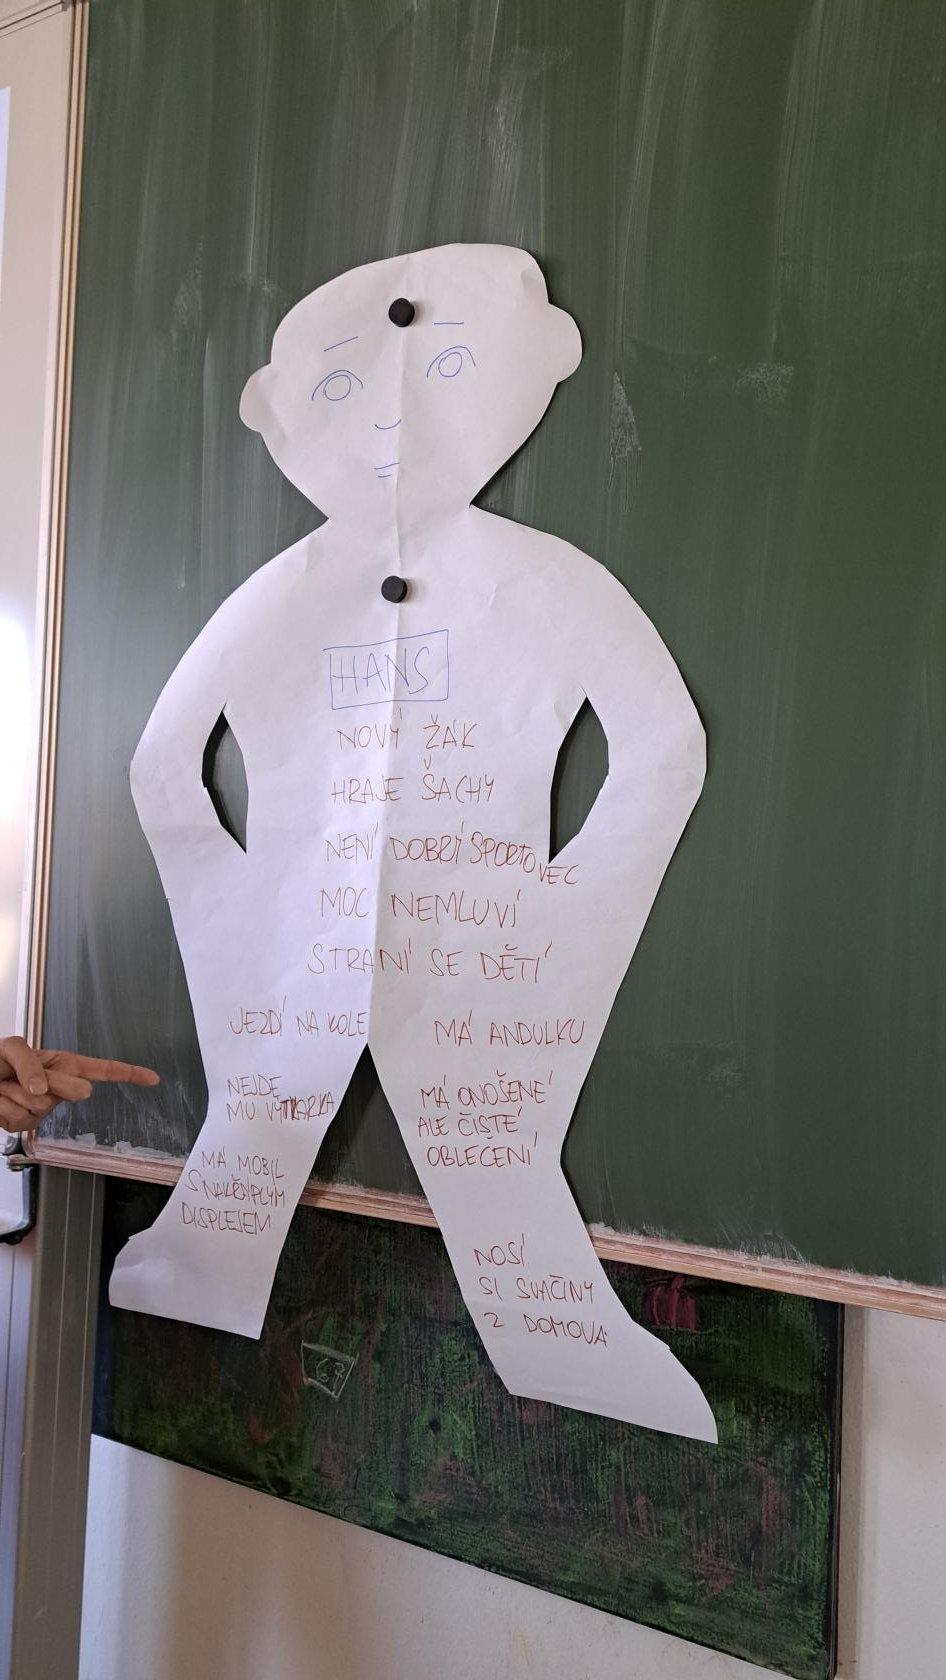 HANS
NOVÝ ŽÁK
HRAJE ŠACHY
NENÍ DOBRÍ SPORTOVEC
MOC NEMLUVÍ
STRANÍ SE DĚTÍ
JEZDÍ NA KOLE
MÁ ANDULKU
NEJDE
MU VÝTVARKA
MÁ ONOŠENÉ
ALE ČISTÉ
OBLEČENÍ
MÁ MOBIL
S
DISPLEJEM
NOSÍ
SI SVAČINY
Z DOMOVA
67